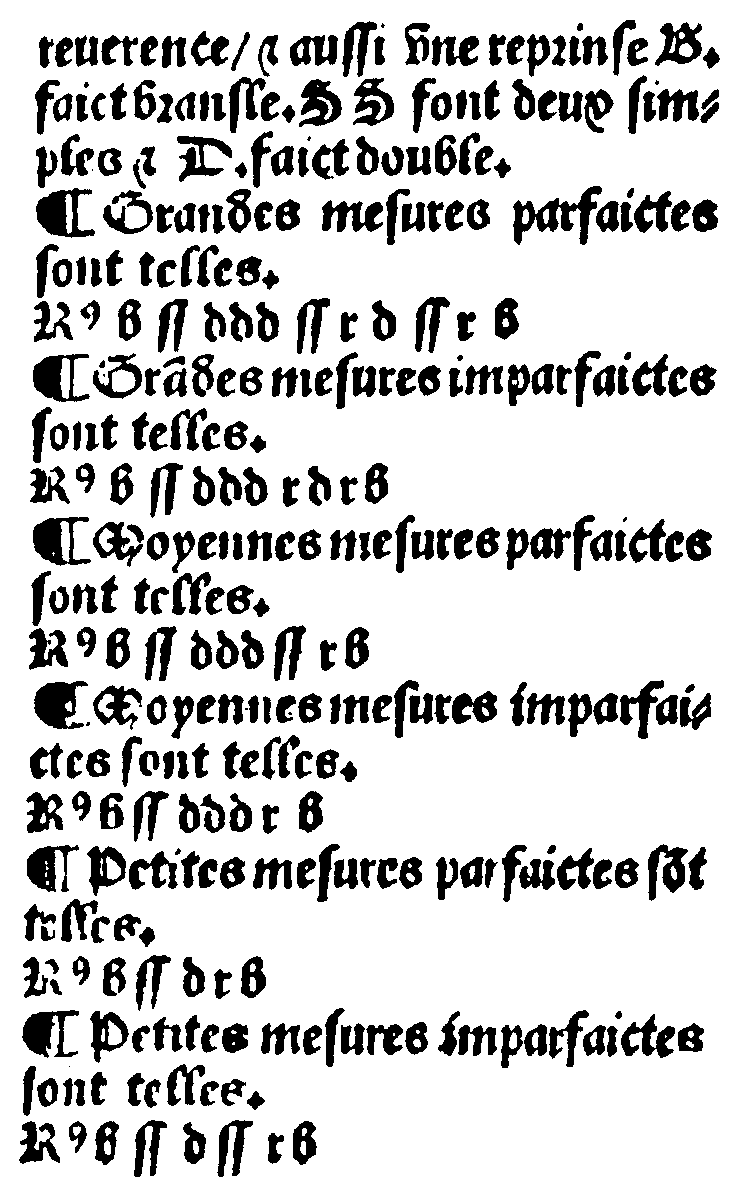 reuerence/ ⁊ auſſi vne reprinſe B.
faict branſle. S S ſont deux ſim⸗
ples ⁊ D. faict double.
¶ Grandes meſures parfaictes
ſont telles.
R⁹ b ſſ ddd ſſ r d ſſ r b
¶ Grãdes meſures imparfaictes
ſont telles.
R⁹ b ſſ ddd r d r b
¶ Moyennes meſures parfaictes
ſont telles.
R⁹ b ſſ ddd ſſ r b
¶ Moyennes meſures imparfai⸗
ctes ſont telles.
R⁹ b ſſ ddd r b
¶ Petites meſures parfaictes ſõt
telles.
R⁹ b ſſ d r b
¶ Petites meſures imparfaictes
ſont telles.
R⁹ b ſſ d ſſ r b